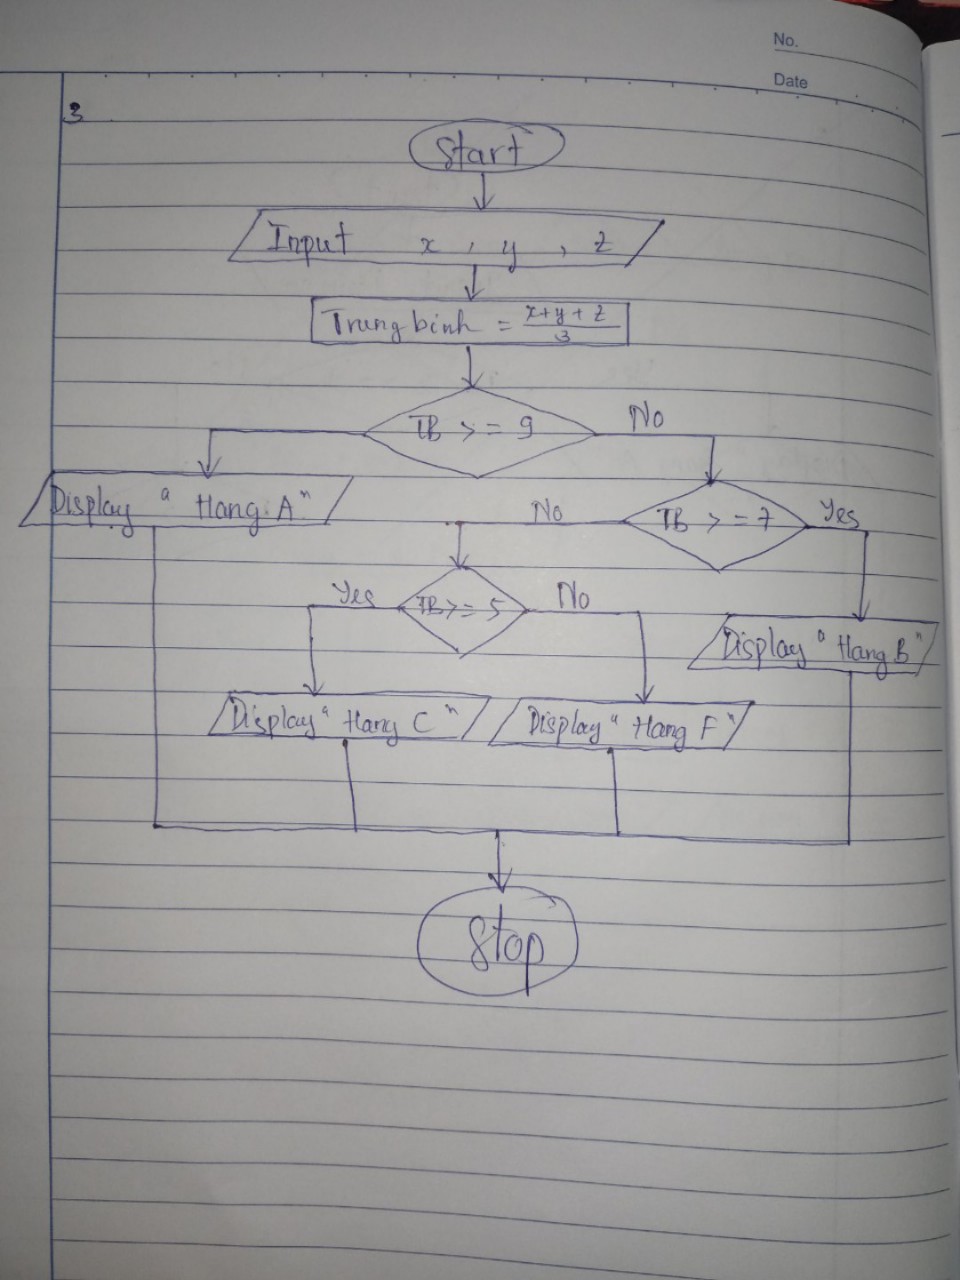 No.
Date
3
Start
Input x , y , z
Trung binh = x+y+z/3
TB >= 9
No
Display "Hang A"
No
TB >= 7
Yes
Yes
TB >= 5
No
Display "Hang B"
Display "Hang C"
Display "Hang F"
Stop